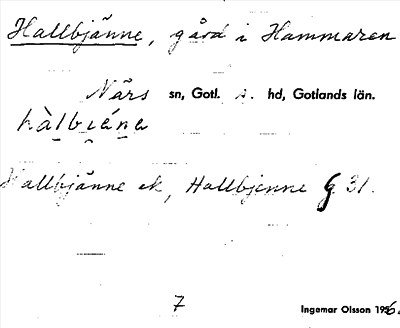 Hallbjänne, gård i Hammaren
Närs sn, Gotl. s. hd, Gotlands län.
hàlbiénə
Hallbjänne ek, Hallbjenne G 31.
7
Ingemar Olsson 1956.